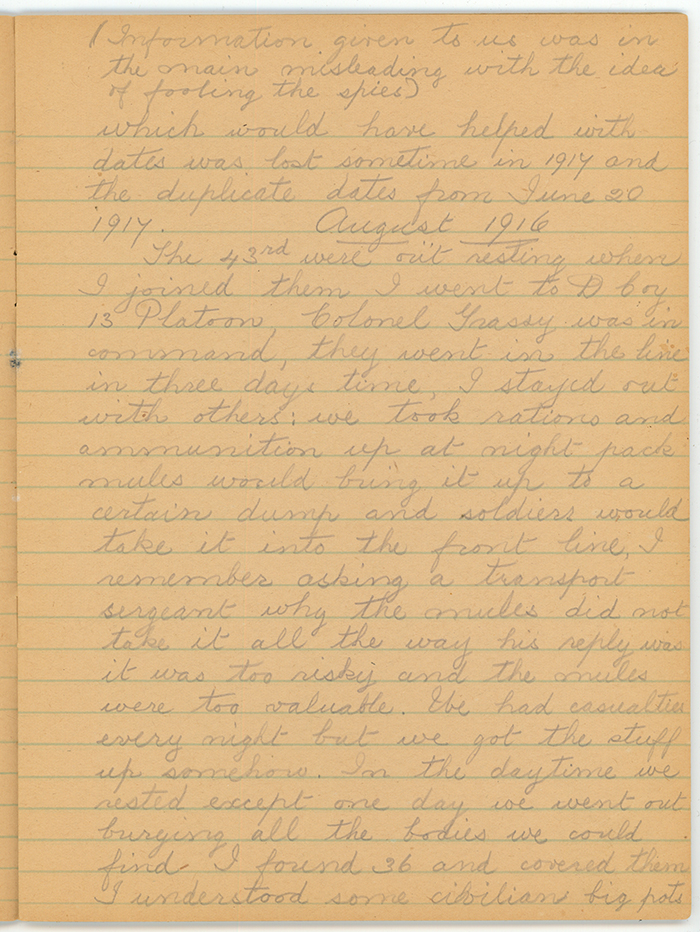 (Information given to us was in
the main misleading with the idea
of fooling the spies)
which would have helped with
dates was lost sometime in 1917 and
the duplicate dates from June 20
1917. August 1916
The 43rd were out resting when
I joined them I went to D Coy
13 Platoon, Colonel Grassy was in
command, they went in the line
in three days time, I stayed out
with others: we took rations and
ammunition up at night pack
mules would bring it up to a
certain dump and soldiers would
take it into the front line, I
remember asking a transport
sergeant why the mules did not
take it all the way his reply was
it was too risky and the mules
were too valuable. We had casualties
every night but we got the stuff
up somehow. In the daytime we
rested except one day we went out
burying all the bodies we could
find I found 36 and covered them
I understood some civilian big pots